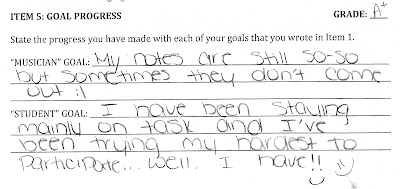 ITEM 5: GOAL PROGRESS GRADE: A+
State the progress you have made with each of your goals that you wrote in Item 1.
"MUSICIAN" GOAL: My notes are still so-so
but sometimes they don't come
out :\
"STUDENT" GOAL: I have been staying
mainly on task and I've
been trying my hardest to
Participate... well. I have!! :)